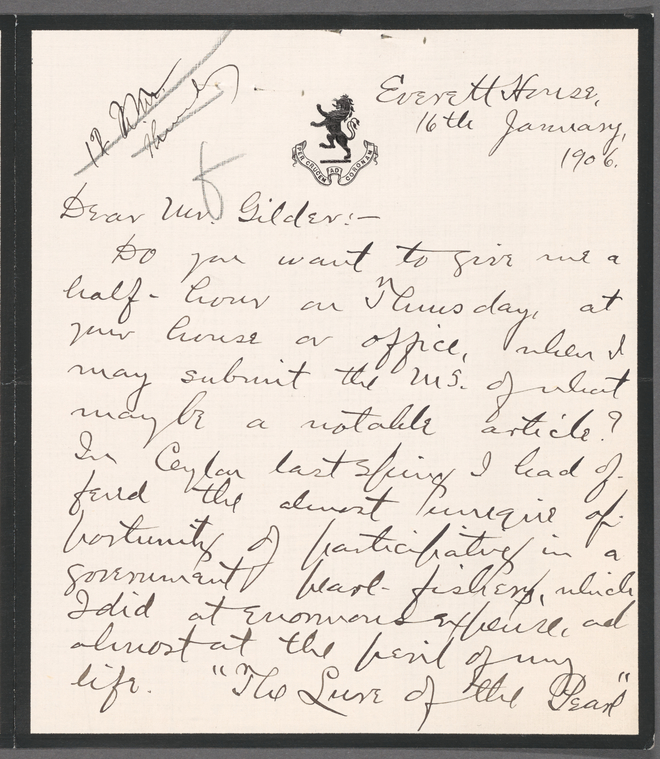 12
Everett House,
16th January,
1906.
PER CRUCEM AD CORONAM
Dear Mr. Gilder:—
Do you want to give me a
half-hour on Thursday, at
your house or office, when I
may submit the MS. of what
maybe a notable article?
In Ceylon last Spring I had of-
fered the almost unique op-
portunity of participating in a
government pearl-fishery, which
I did at enormous expense, and
almost at the peril of my
life. "The Lure of the Pearl"